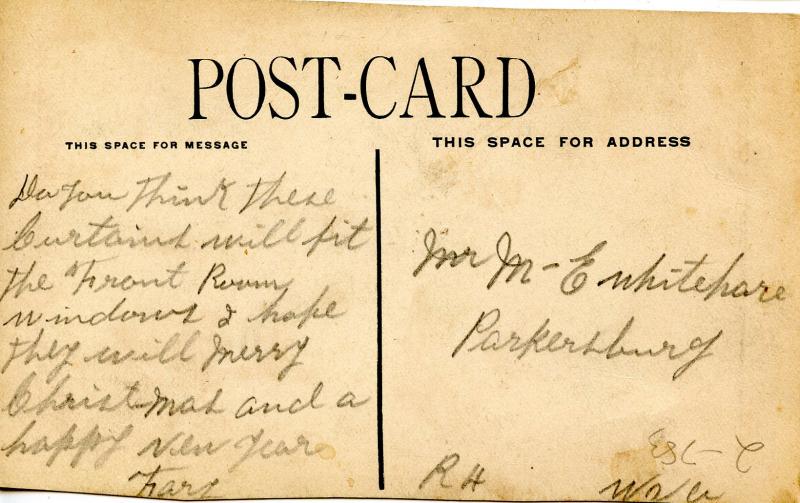 POST-CARD
THIS SPACE FOR MESSAGE
Do you think these
Curtains will fit
the Front Room
windows I hope
they will Merry
Christ-mas and a
happy new year
THIS SPACE FOR ADDRESS
Mr M-E Whitehare
Parkersburg
R #
W Va